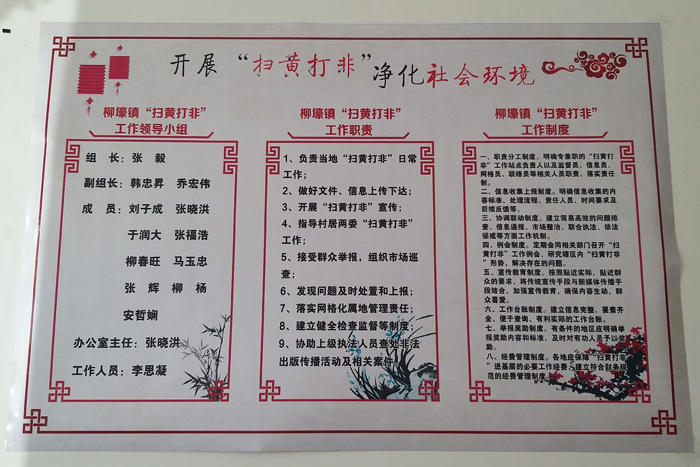 开展“扫黄打非”净化社会环境
柳壕镇“扫黄打非”
工作领导小组
组 长：张 毅
副组长：韩忠昇 乔宏伟
成 员：刘子成 张晓洪
于润大 张福浩
柳春旺 马玉忠
张 辉 柳 杨
安哲娴
办公室主任：张晓洪
工作人员：李思凝
柳壕镇“扫黄打非”
工作职责
1、负责当地“扫黄打非”日常
工作；
2、做好文件、信息上传下达；
3、开展“扫黄打非”宣传；
4、指导村居两委“扫黄打非”
工作；
5、接受群众举报，组织市场巡
查；
6、发现问题及时处置和上报；
7、落实网格化属地管理责任；
8、建立健全检查监督等制度；
9、协助上级执法人员查处非法
出版传播活动及相关案件。
柳壕镇“扫黄打非”
工作制度
一、职责分工制度。明确专兼职的“扫黄打
非”工作站点负责人以及监督员、信息员、
网格员、联络员等相关人员职责，落实责任
制。
二、信息收集上报制度。明确信息收集的内
容标准、处理流程、责任人员、时间要求及
后续反馈等。
三、协调联动制度。建立简易高效的问题排
查、信息通报、市场整治、联合执法、依法
惩戒等方面工作机制。
四、例会制度。定期会同相关部门召开“扫
黄打非”工作例会，研究辖区内“扫黄打非
”形势，解决存在的问题。
五、宣传教育制度。按照贴近实际、贴近群
众的要求，将传统宣传手段与新媒体传播手
段结合，加强宣传教育，确保内容生动、群
众喜爱。
六、工作台账制度。建立信息完整、要素齐
全、便于查询、有利实际的工作台账。
七、举报奖励制度。有条件的地区应明确举
报奖励内容和标准，及时对有功人员予以奖
励。
八、经费管理制度。各地应保障“扫黄打非
”进基层的必要工作经费，建立符合财务规
范的经费管理制度。